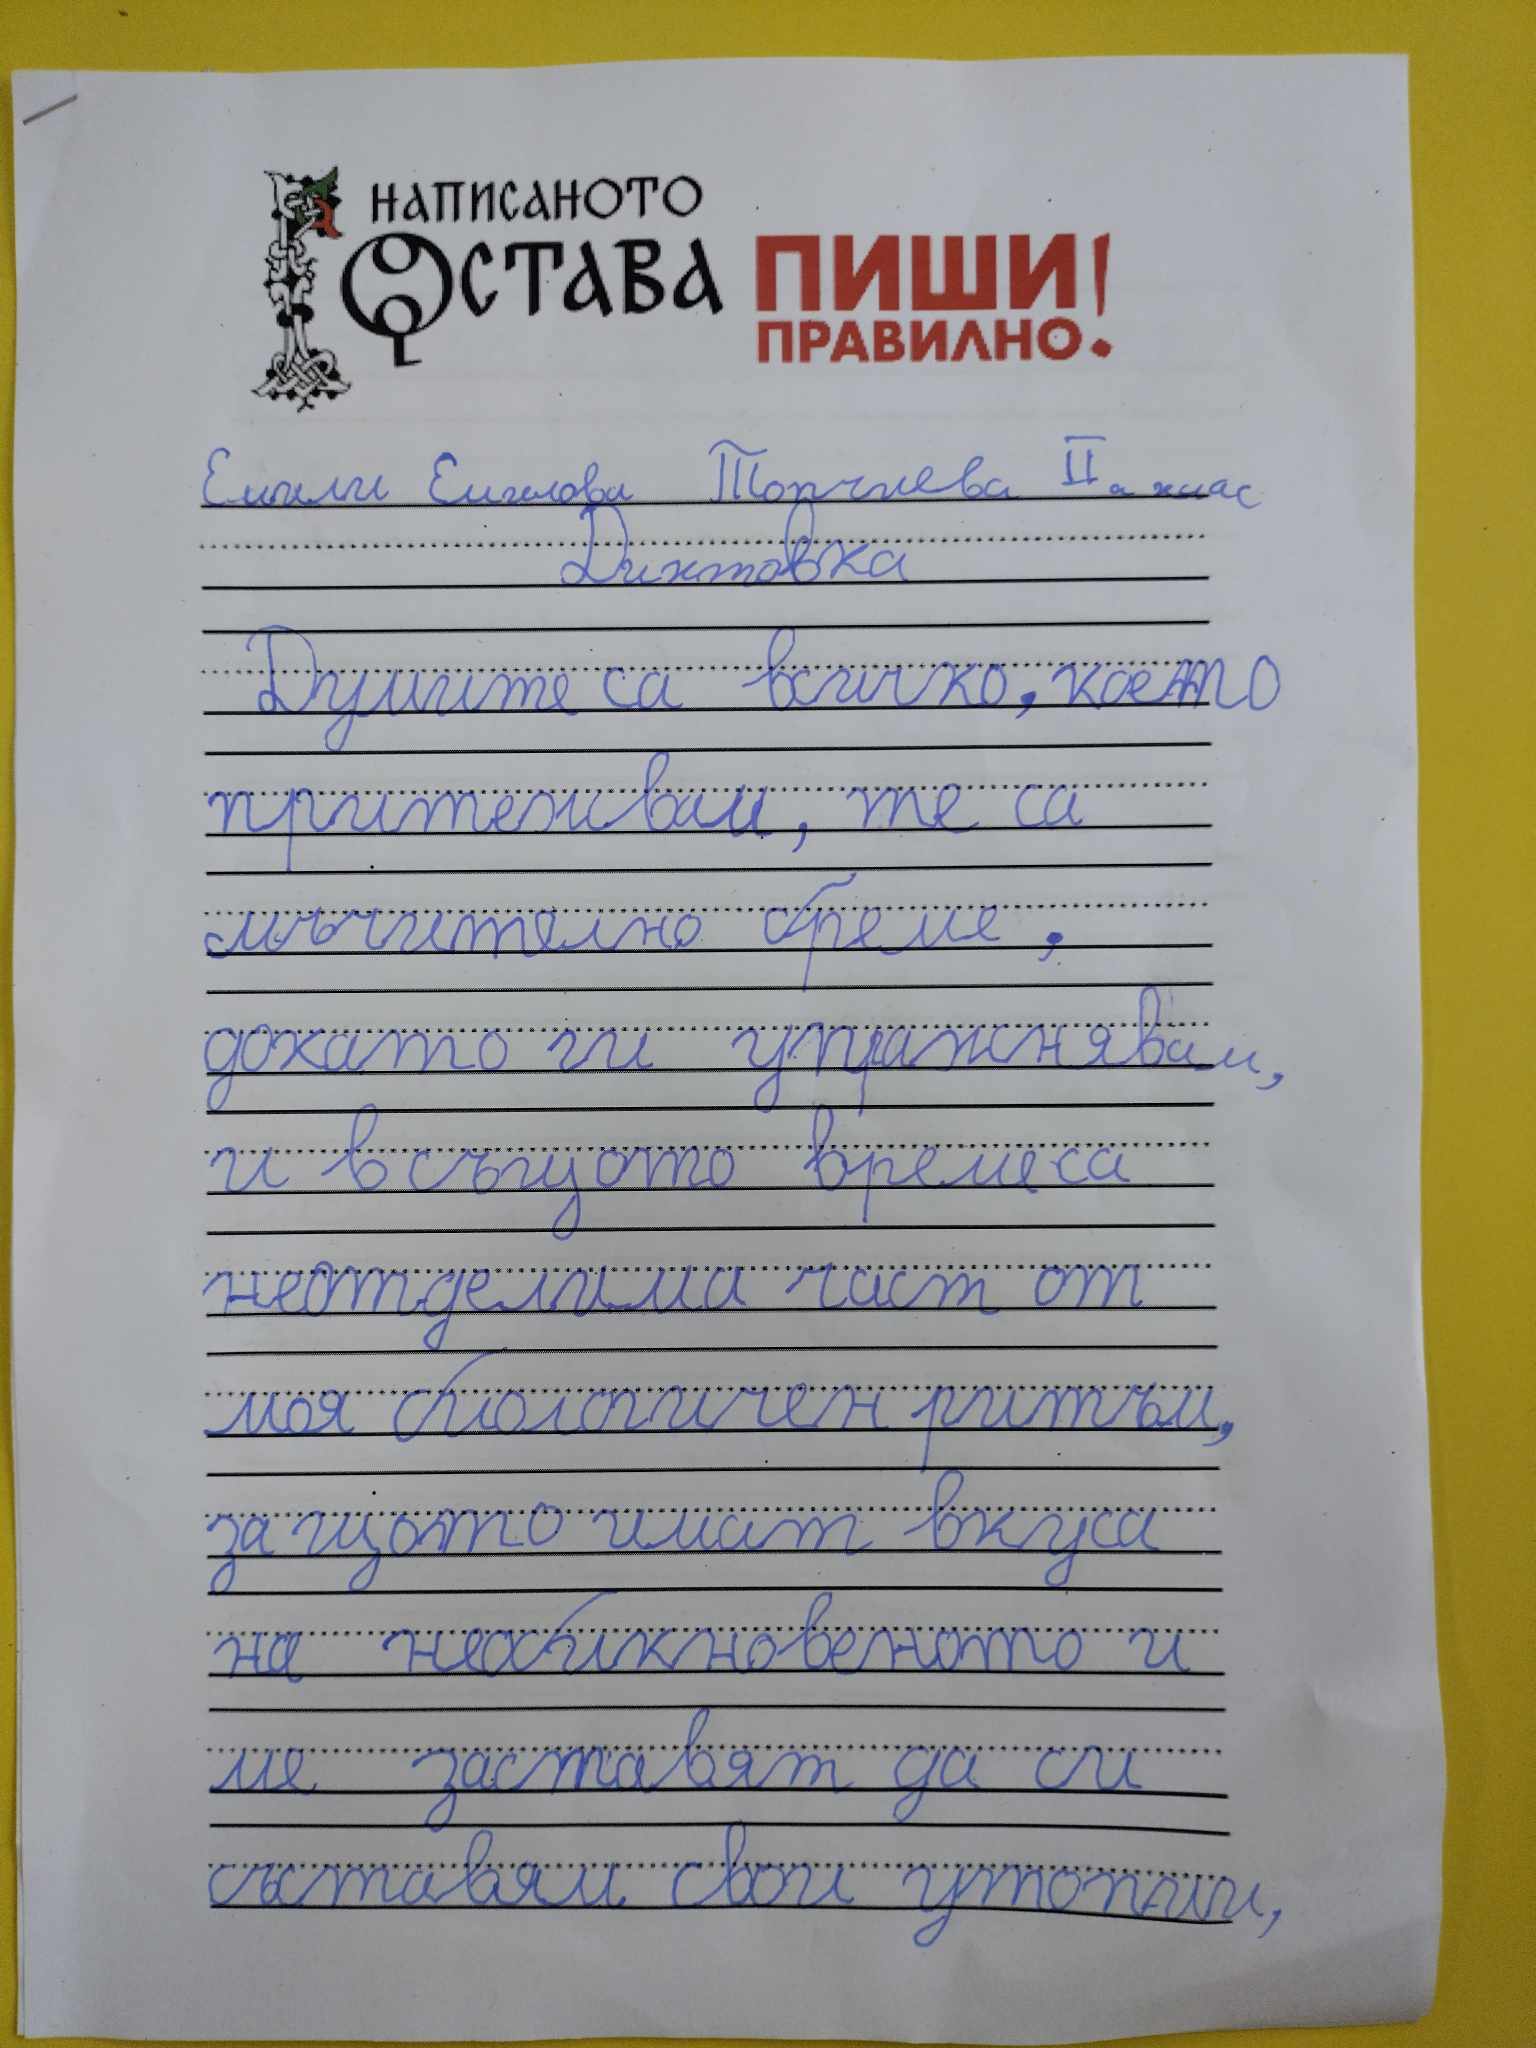 НАПИСАНОТО
ОСТАВА
ПИШИ!
ПРАВИЛНО.
Емили Емилова Топчиева II а клас
Диктовка
Думите са всичко, което
притежвам, те са
мъчително бреме,
докато ги упражнявам,
и в същото време са
неотделима част от
моя биологичен ритъм,
защото имат вкуса
на необикновеното и
ме заставят да си
съставям свои утопии,